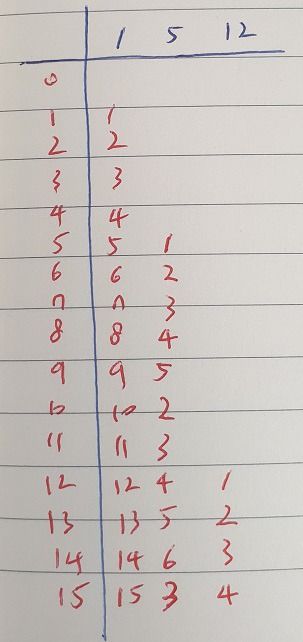 1 5 12
0
1 1
2 2
3 3
4 4
5 5 1
6 6 2
7 7 3
8 8 4
9 9 5
10 10 2
11 11 3
12 12 4 1
13 13 5 2
14 14 6 3
15 15 3 4